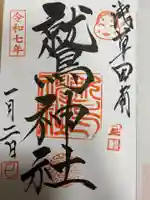 浅草田甫
鷲神社
令和七年
一月二日